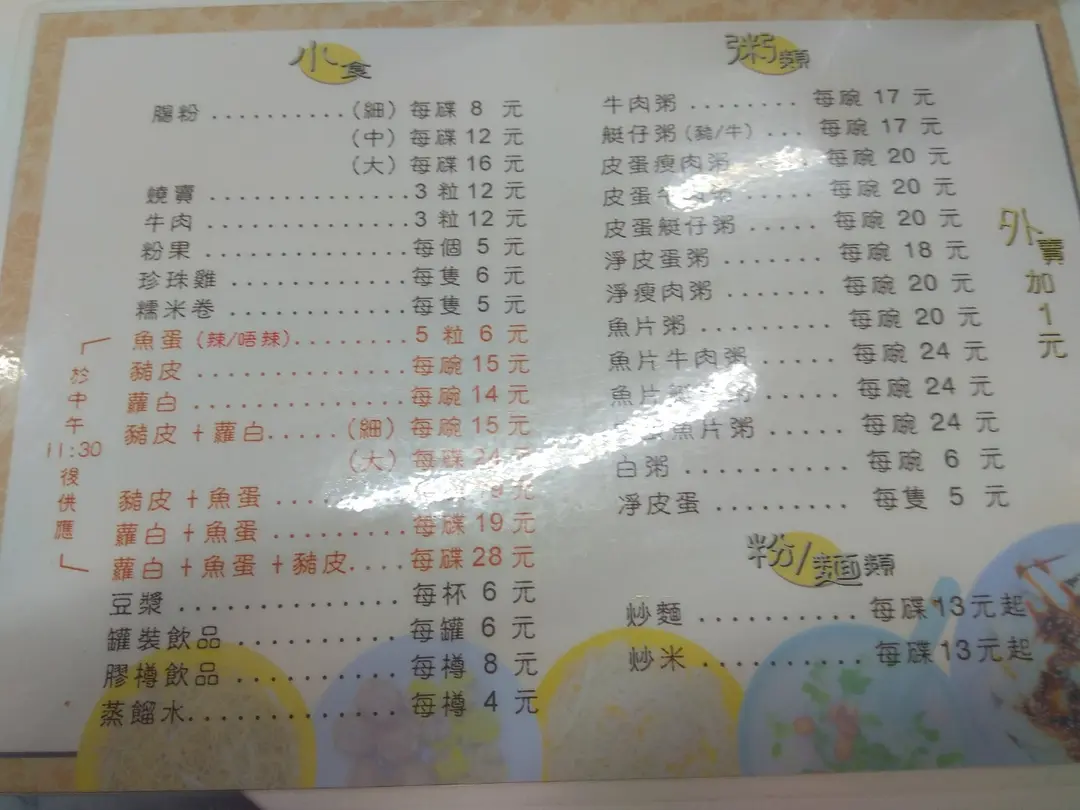 小食
腸粉..........(細) 每碟 8 元
(中) 每碟 12 元
(大) 每碟 16 元
燒賣...............3 粒 12 元
牛肉...............3 粒 12 元
粉果...............每個 5 元
珍珠雞.............每隻 6 元
糯米卷.............每隻 5 元
魚蛋(辣/唔辣)........5 粒 6 元
豬皮...............每碗 15 元
蘿白...............每碗 14 元
豬皮+蘿白.....(細) 每碗 15 元
(大) 每碟 24 元
豬皮+魚蛋.......... 9 元
蘿白+魚蛋..........每碟 19 元
蘿白+魚蛋+豬皮....每碟 28 元
於中午11:30後供應
豆漿...............每杯 6 元
罐裝飲品...........每罐 6 元
膠樽飲品...........每樽 8 元
蒸餾水.............每樽 4 元
粥類
牛肉粥........每碗 17 元
艇仔粥(豬/牛)...每碗 17 元
皮蛋瘦肉粥 每碗 20 元
皮蛋牛肉粥 每碗 20 元
皮蛋艇仔粥.....每碗 20 元
淨皮蛋粥.......每碗 18 元
淨瘦肉粥.......每碗 20 元
魚片粥.........每碗 20 元
魚片牛肉粥.....每碗 24 元
魚片 粥.....每碗 24 元
魚片粥.....每碗 24 元
白粥..........每碗 6 元
淨皮蛋........每隻 5 元
外賣加1元
粉/麵類
炒麵..........每碟13元起
炒米..........每碟13元起